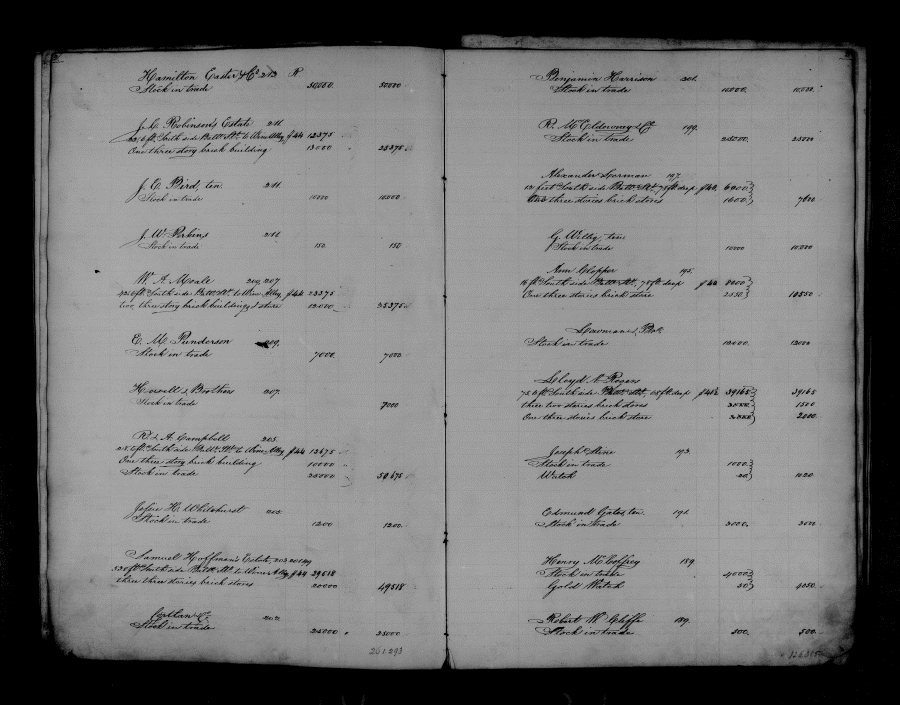 Hamilton Easter & Co 213 R
Stock in trade 50000. 50000
J. C. Robinson's Estate 211.
ft. South side Balto. St. to Wine Alley, 12375
One three story brick building 13000 25375
J. E. Bird, ten. 211.
Stock in trade 10000 10.000
J. W. Perkins 211
Stock in trade 150 150
W. A. Moale 209, 207
ft. South side Balto. St. to Wine Alley, 23375
two three story brick buildings & store 12000 35375
E. M. Punderson 209.
Stock in trade 7000. 7000
Howell & Brothers 207.
Stock in trade 7000
R. & A. Campbell 205.
ft. South side Balto. St. to Wine Alley, 13675
One three story brick building 10000
Stock in trade
H. Whitehurst 205.
Stock in trade 1200 1200.
Samuel Hoffman's Estate,
ft. South side Balto. St. to Wine Alley 29518
three three stories brick stores 20000 49518
Stock in trade 25000 25000
261.293
Benjamin Harrison 201.
Stock in trade 10.000. 10.000.
R. & Co 199.
Stock in trade 25000. 25000
Alexander 197.
12 feet South side Balto. St. 75 ft deep 6000
three stories brick stores 1600
G. ten.
Stock in trade 10000 10.000
Ann Clopper 195.
16 ft. South side Balto. St., 75 ft deep 8000
One three stories brick store 2550 10550
Bro.
Stock in trade 12000. 12000
Lloyd N. Rogers
ft. South side Balto. St., ft deep 39165 39165
three two stories brick stores 1500
One three stories brick store 2000
Joseph 193.
Stock in trade 1000
Watch 20 1020
Edmund Gates, ten. 191.
Stock in trade 3000. 3000
Henry McCoffrey 189.
Stock in trade 4000
Gold Watch 50 4050
Robert W. 189.
Stock in trade 500. 500.